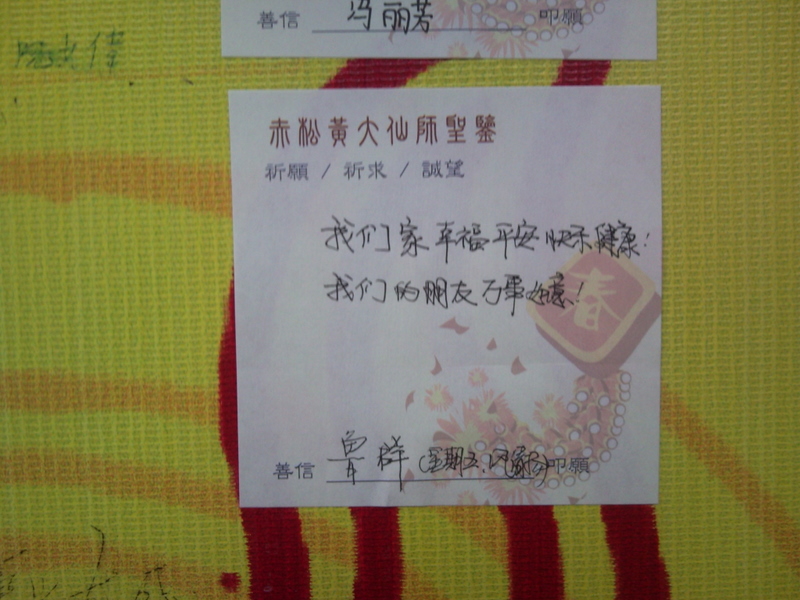 善信 冯丽芳 叩願
赤松黃大仙師聖鑒
祈願 / 祈求 / 誠望
我们家幸福平安快乐健康!
我们的朋友万事如意!
善信 群(星期五、) 叩願
春